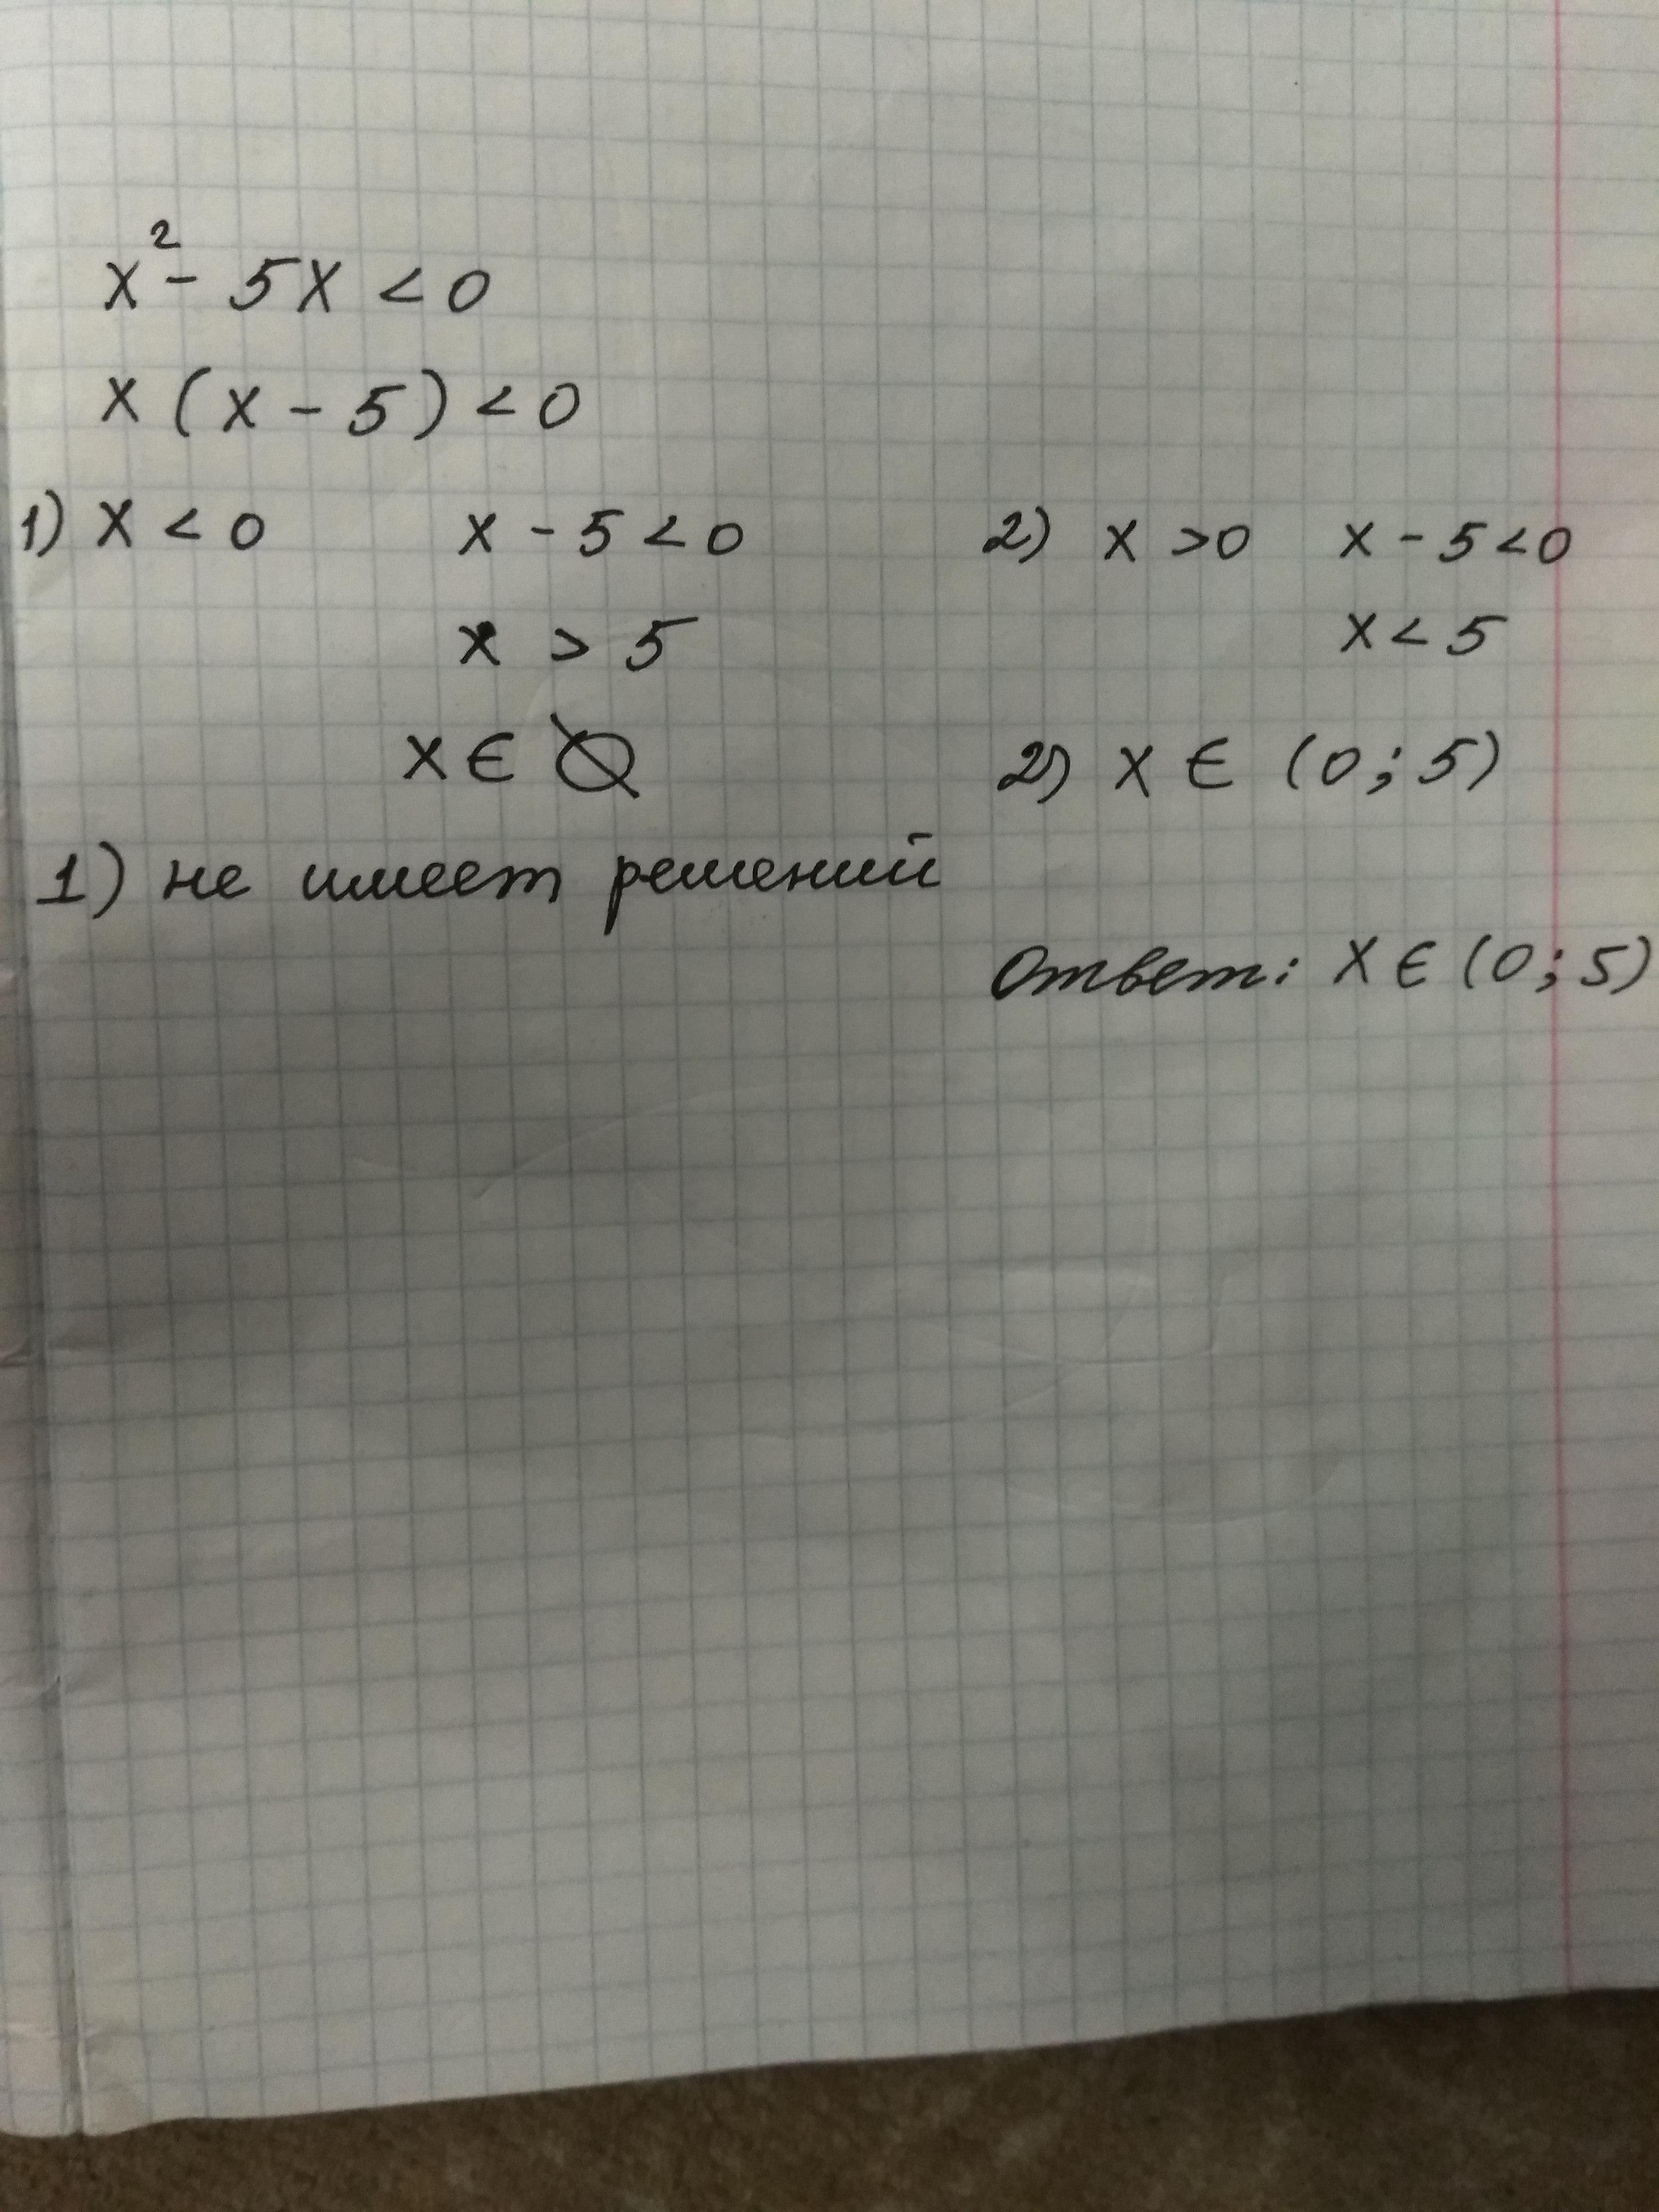 x² - 5x < 0
x (x - 5) < 0
1) x < 0 x - 5 < 0 2) x > 0 x - 5 < 0
x > 5 x < 5
x ∈ ∅ 2) x ∈ (0; 5)
1) не имеет решений
Ответ: x ∈ (0; 5)